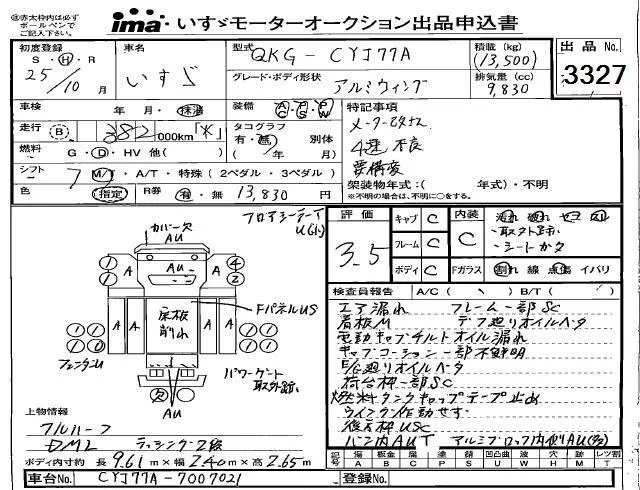 ㊟赤太枠内は必ず
ボールペンで
ご記入下さい。
ima いすゞモーターオークション出品申込書
初度登録 S・H・R 25年 10月
車名 いすゞ
型式 QKG-CYJ77A
積載(kg) (13,500)
グレード・ボディ形状 アルミウィング
排気量(cc) 9,830
出品No. 3327
車検 年・月・抹消
装備 AC PS PW
特記事項
走行 B 382,000km「米」
タコグラフ 有・無 別体
メーター改ザン
燃料 G・D・HV 他( )
4速不良
要構変
シフト 7 MT・A/T・特殊(2ペダル・3ペダル)
架装物年式:( 年式)・不明
※不明の場合は、不明に○をする。
色 (指定) R券 有・無 13,830円
フロアシーテーT
U(小)
カバー欠
AU
評価 3.5
キャブ C
フレーム C
ボディ C
内装 C
汚れ 破れ
・取外跡
・シートカタ
Fガラス 割れ 線 点傷 イバリ
検査員報告 A/C( )B/T( )
AU
A A 4 2
A A 床板削れ A A
FパネルUS
フェンダーU
パワーゲート
取外跡
AU
エア漏れ フレーム一部SC
看板M デフ廻りオイルベタ
電動キャブチルトオイル漏れ
キャブコーション一部不鮮明
E/G廻りオイルベタ
荷台枠一部SC
燃料タンクキャップテープ止め
ウイング作動せず
後天枠USC
バン内AUT アルミブロック内側AU(多)
上物情報
フルハーフ
DML ラッシング2段
ボディ内寸約 長9.61m×幅2.40m×高2.65m
記号 A B C D E F G H I J
車台No. CYJ77A-7007021
登録No.